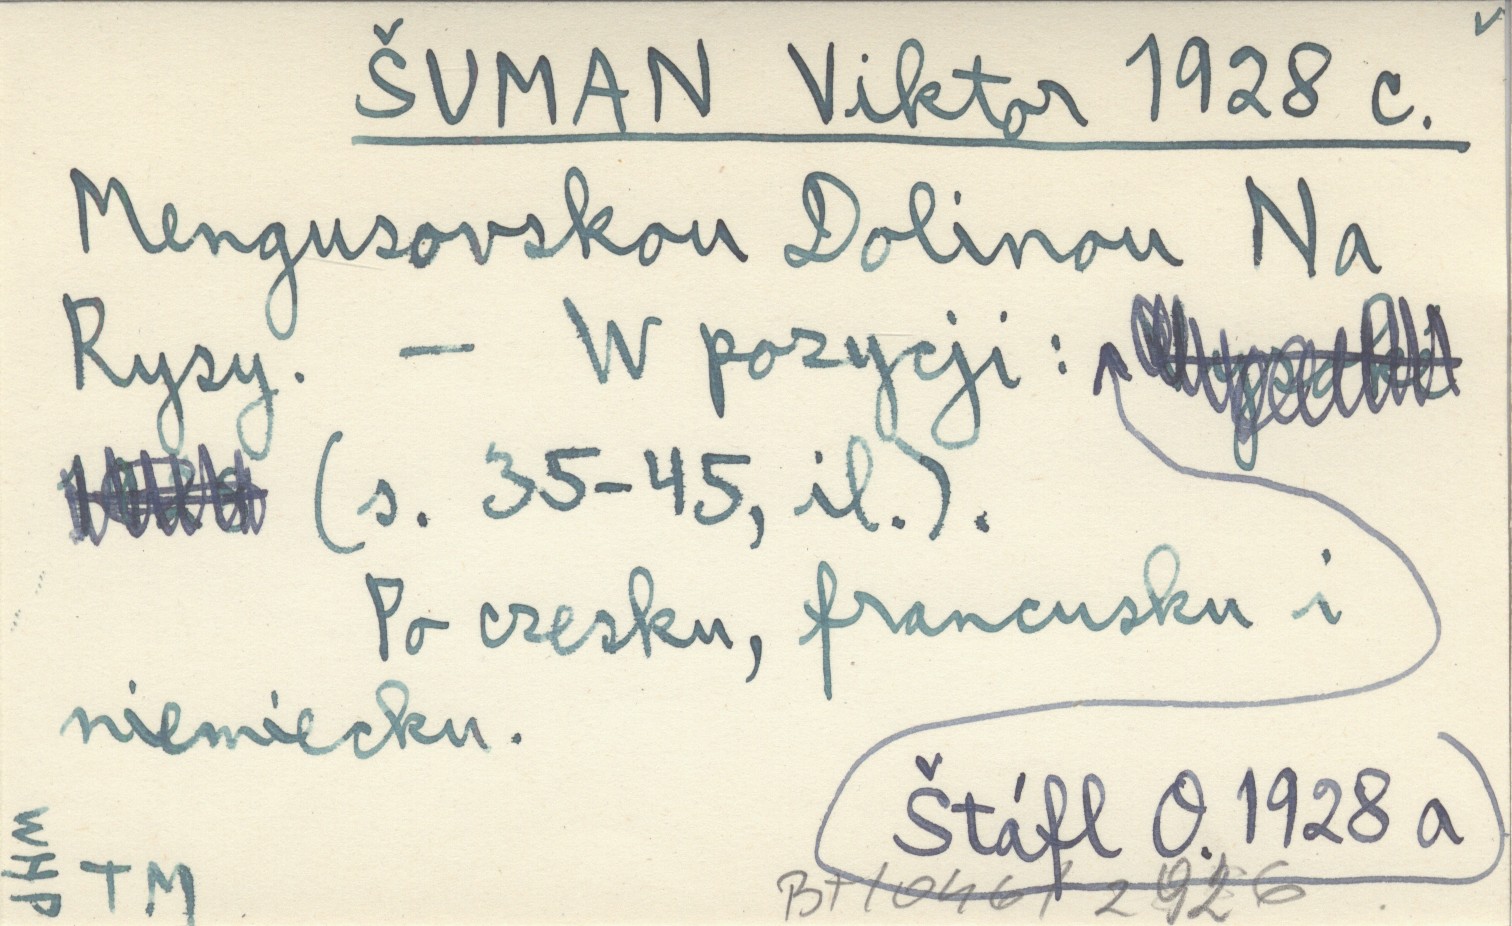 ŠUMAN Viktor 1928 c.
Mengusovskou Dolinou Na
Rysy. — W pozycji:
(s. 35-45, il.).
Po czesku, francusku i
niemiecku.
Štáfl O. 1928 a
WHP
TM